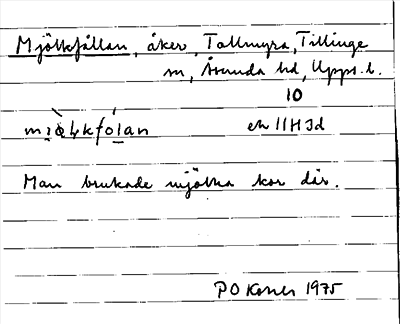 Mjölkfållan, åker, Tallmyra, Tillinge
sn, Åsunda hd, Upps. l.
10
mjö̀lkfólan ek 11H3d
Man brukade mjölka kor där.
P O 1975